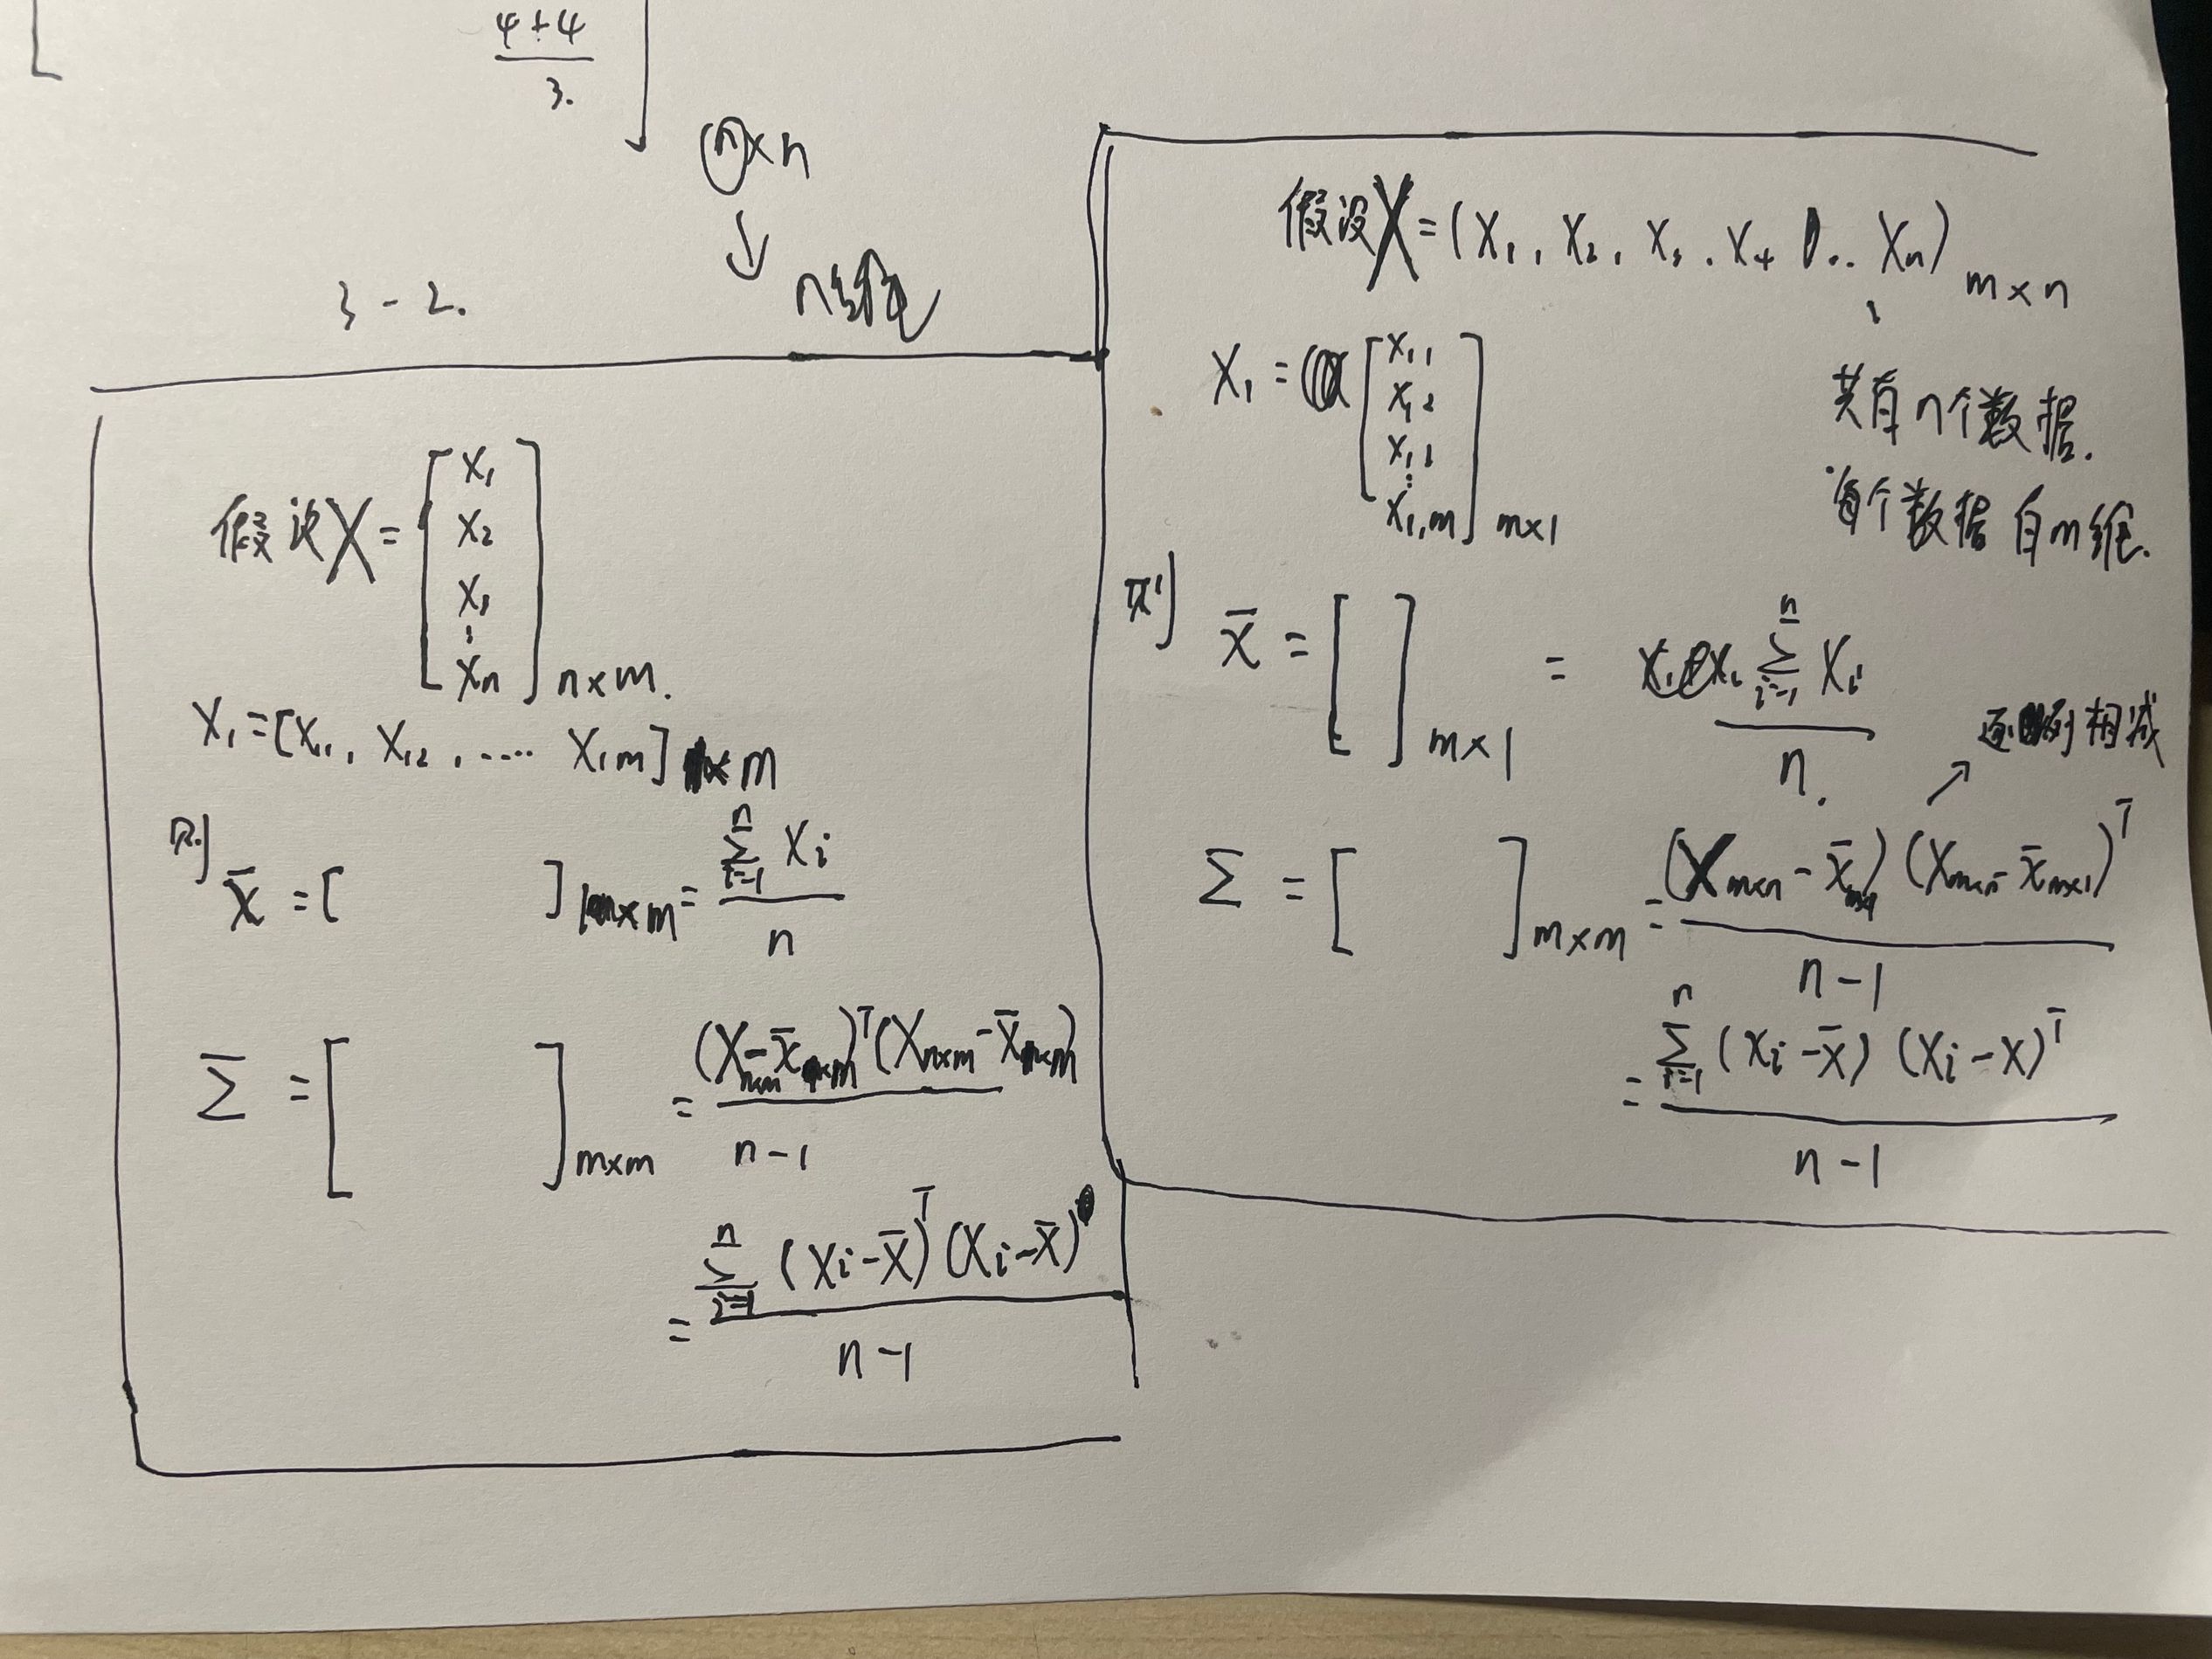 φ+φ
3.
①×n
3 - 2.
假设X = [x₁ x₂ x₁ ⋮ xₙ] n×m.
x₁ = [x₁₁, x₁₂, .... x₁m]
则 x̄ = [ ] ×m = Σⁿᵢ₌₁ xᵢ / n
Σ = [ ] m×m = (X n×m - x̄)ᵀ (X n×m - x̄) / n-1
= Σⁿᵢ₌₁ (xᵢ - x̄)ᵀ (xᵢ - x̄) / n-1
假设X = (x₁, x₂, x₃, x₄ ... xₙ) m×n
共有n个数据.
每个数据有m维.
x₁ = [x₁₁ x₁₂ x₁ ⋮ x₁m] m×1
则 x̄ = [ ] m×1 = Σⁿᵢ₌₁ xᵢ / n.
逐列相减
Σ = [ ] m×m = (X m×n - x̄) (X m×n - x̄ m×1)ᵀ / n-1
= Σⁿᵢ₌₁ (xᵢ - x̄) (xᵢ - x)ᵀ / n-1